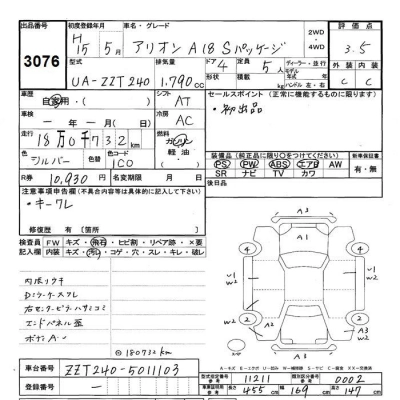 出品番号
3076
初度登録年月
H
15年 5月
車名・グレード
アリオン A18 Sパッケージ
2WD
・
4WD
評価点
3.5
型式
UA-ZZT240
排気量
1.790cc
ドア 4
形状
定員 5人
積載量 kg
ディーラー・並行
モデル年式 年
ハンドル 左・右
外装 内装
C C
車歴
自家用・( )
シフト
AT
セールスポイント (正常に機能するものに限ります)
・初出品
車検
ー年 ー月 ー日
冷房
AC
走行
18万0千732km
燃料
ガソリン
軽油・
色
シルバー
色替
色コード
1C0
装備品 (純正品に限り○をつけてください)
PS PW ABS エアB AW
SR ナビ TV カワ
新車保証書
有・無
R券
10,930円
名変期限 月 日
後日品
注意事項申告欄 (不具合内容は具体的に記入して下さい)
・キーワレ
修復歴 有 〔箇所 〕
検査員
記入欄
FW キズ・飛石・ヒビ割・リペア跡・×要
内装 キズ・汚れ・コゲ・穴・スレ・キレ・破レ
Dシートスレ
エンドパネル歪
◎180732km
A3
A1
4 4
v1
w2
v1
w2
2 2
A2
A3
w2
A3
車台番号
ZZT240-5011103
登録番号
ー
型式指定番号
11211
類別区分番号
0002
長さ 455cm
幅 169cm
高さ 147cm